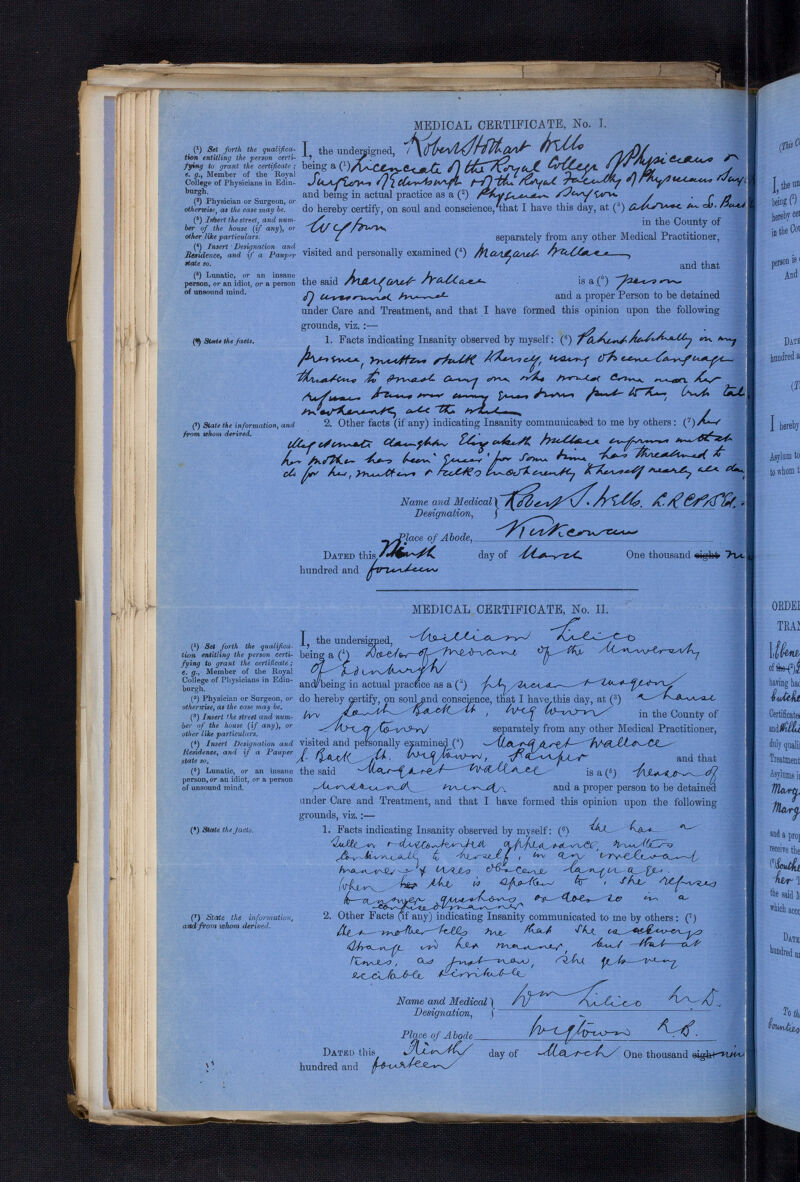 MEDICAL CERTIFICATE, No. I.
(1) Set forth the qualifica-
tion entitling the person certi-
fying to grant the certificate;
e. g., Member of the Royal
College of Physicians in Edin-
burgh.
(2) Physician or Surgeon, or
otherwise, as the case may be.
(3) Insert the street, and num-
ber of the house (if any), or
other like particulars.
(4) Insert Designation and
Residence, and if a Pauper
state so.
(5) Lunatic, or an insane
person, or an idiot, or a person
of unsound mind.
(6) State the facts.
(7) State the information, and
from whom derived.
I, the undersigned, Robert Stothart Wells
being a (1) Licenciate of the Royal College of Physicians &
Surgeons of Edinburgh & of the Royal Faculty of Physicians
and being in actual practice as a (2) Physician & Surgeon
do hereby certify, on soul and conscience, that I have this day, at (3) a house in S. Back
Wigtown in the County of
separately from any other Medical Practitioner,
visited and personally examined (4) Margaret Wallace
and that
the said Margaret Wallace is a (5) person
of unsound mind and a proper Person to be detained
under Care and Treatment, and that I have formed this opinion upon the following
grounds, viz. :—
1. Facts indicating Insanity observed by myself: (6) Patient habitually in my
presence, mutters & talk to herself, using obscene language
threatens to smash any one who would come near her
refuses to answer any questions put to her, but talks
incoherently all the while
2. Other facts (if any) indicating Insanity communicated to me by others: (7) her
illegitimate daughter Elizabeth Wallace informs me that
her mother has been 'queer' for some time has threatened to
do for her, mutters & talks incoherently to herself nearly all day
Name and Medical Designation, Robert S. Wells. L.R.C.P. & S. Ed.
Place of Abode, Kirkcowan
DATED this Ninth day of March One thousand eight
hundred and fourteen
MEDICAL CERTIFICATE, No. II.
(1) Set forth the qualifica-
tion entitling the person certi-
fying to grant the certificate;
e. g., Member of the Royal
College of Physicians in Edin-
burgh.
(2) Physician or Surgeon, or
otherwise, as the case may be.
(3) Insert the street and num-
ber of the house (if any), or
other like particulars.
(4) Insert Designation and
Residence, and if a Pauper
state so.
(5) Lunatic, or an insane
person, or an idiot, or a person
of unsound mind.
(6) State the facts.
(7) State the information,
and from whom derived.
I, the undersigned, William Lilico
being a (1) Doctor of Medicine of the University
of Edinburgh
and being in actual practice as a (2) physician & surgeon
do hereby certify, on soul and conscience, that I have this day, at (3) a house
in South Back St, Wigtown in the County of
Wigtown separately from any other Medical Practitioner,
visited and personally examined (4) Margaret Wallace
S. Back St. Wigtown, Pauper and that
the said Margaret Wallace is a (5) person of
unsound mind and a proper person to be detained
under Care and Treatment, and that I have formed this opinion upon the following
grounds, viz. :—
1. Facts indicating Insanity observed by myself: (6) She has a
sullen & discontented appearance, mutters
continually to herself, in an irrelevant
manner & uses obscene language.
When she is spoken to, she refuses
to answer questions or does so in a
confused manner
2. Other Facts (if any) indicating Insanity communicated to me by others: (7)
Her mother tells me that she is always
strange in her manner, but that at
times, as just now, she gets very
excitable & irritable
Name and Medical Designation, Wm Lilico M.D.
Place of Abode Wigtown N.B.
DATED this Ninth day of March One thousand eight nine
hundred and fourteen